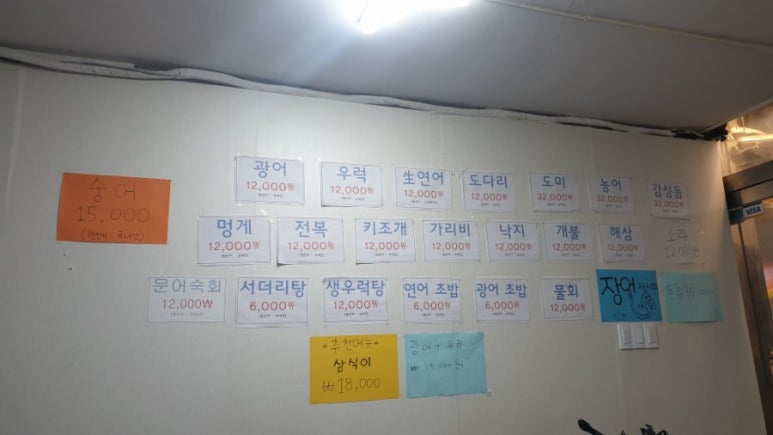 숭어
15,000
(원산지 국내산)
광어
12,000₩
우럭
12,000₩
生연어
12,000₩
도다리
12,000₩
도미
32,000₩
농어
32,000₩
감성돔
32,000₩
멍게
12,000₩
전복
12,000₩
키조개
12,000₩
가리비
12,000₩
낙지
12,000₩
개불
12,000₩
해삼
12,000₩
소라
문어숙회
12,000₩
서더리탕
6,000₩
생우럭탕
12,000₩
연어 초밥
6,000₩
광어 초밥
6,000₩
물회
12,000₩
장어
*추천메뉴*
삼식이
₩18,000
VISA